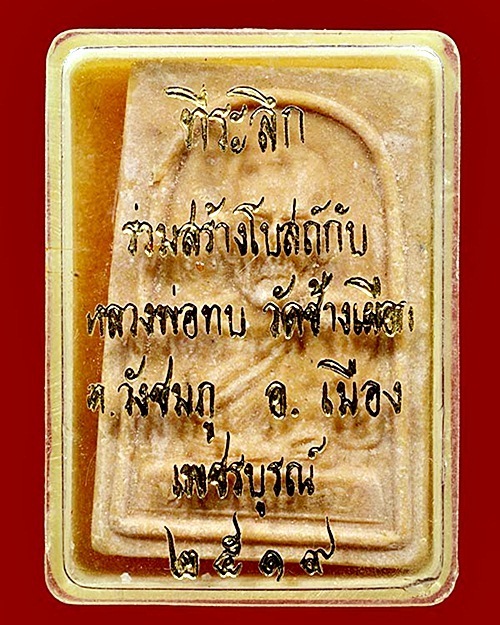 ที่ระลึก
ร่วมสร้างโบสถ์กับ
หลวงพ่อทบ วัดช้างเผือก
ต.วังชมภู อ. เมือง
เพชรบูรณ์
๒๕๑๙